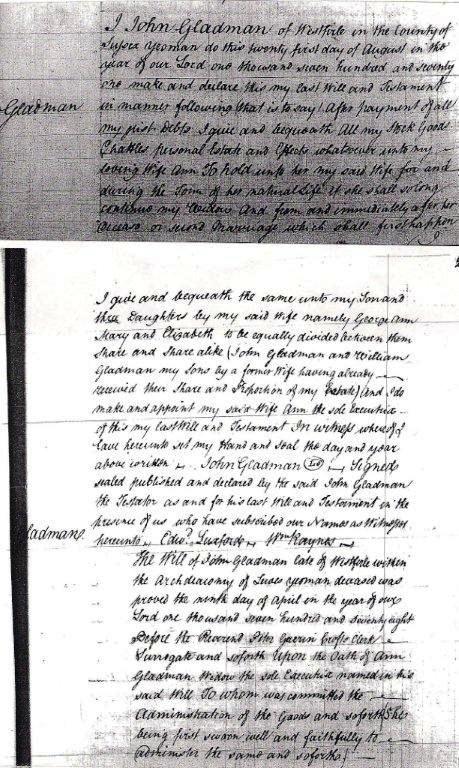 I John Gladman of Westfirle in the County of
Sussex Yeoman do this twenty first day of August in the
year of our Lord one thousand seven hundred and seventy
one make and declare this my last Will and Testament
Gladman
in manner following that is to say) After payment of all
my just Debts I give and bequeath All my Stock Goods
Chattles personal Estate and Effects whatsoever unto my
loving Wife Ann To hold unto her my said Wife for and
during the Term of her natural Life if she shall so long
continue my Widow And from and immediately after her
decease or second Marriage which shall first happen
I give and bequeath the same unto my Son and
three Daughters by my said Wife namely George Ann
Mary and Elizabeth to be equally divided between them
Share and Share alike (John Gladman and William
Gladman my Sons by a former Wife having already
received their Share and Proportion of my Estate) And I do
make and appoint my said Wife Ann the sole Executrix
of this my last Will and Testament In witness whereof I
have hereunto set my Hand and Seal the day and year
above written John Gladman Signed
sealed published and declared by the said John Gladman
the Testator as and for his last Will and Testament in the
presence of us who have subscribed our Names as Witnesses
ladmans
hereunto Edwd. Wm Raynes
The Will of John Gladman late of Westfirle within
the Archdeaconry of Lewes Yeoman deceased was
proved the ninth day of April in the year of our
Lord one thousand seven hundred and seventy eight
Before the Reverend Peter Crofts Clerk
Surrogate and soforth Upon the Oath of Ann
Gladman Widow the sole Executrix named in his
said Will To whom was committed the
Administration of the Goods and soforth She
being first sworn well and faithfully to
administer the same and soforth